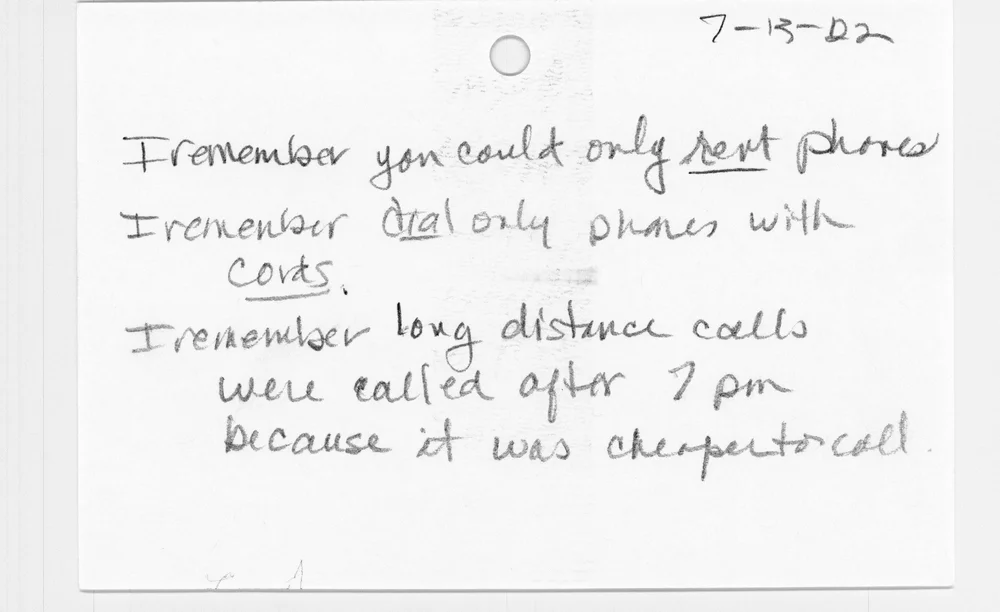 7-13-D2
I remember you could only rent phones
I remember dial only phones with
cords.
I remember long distance calls
were called after 7 pm
because it was cheaper to call.